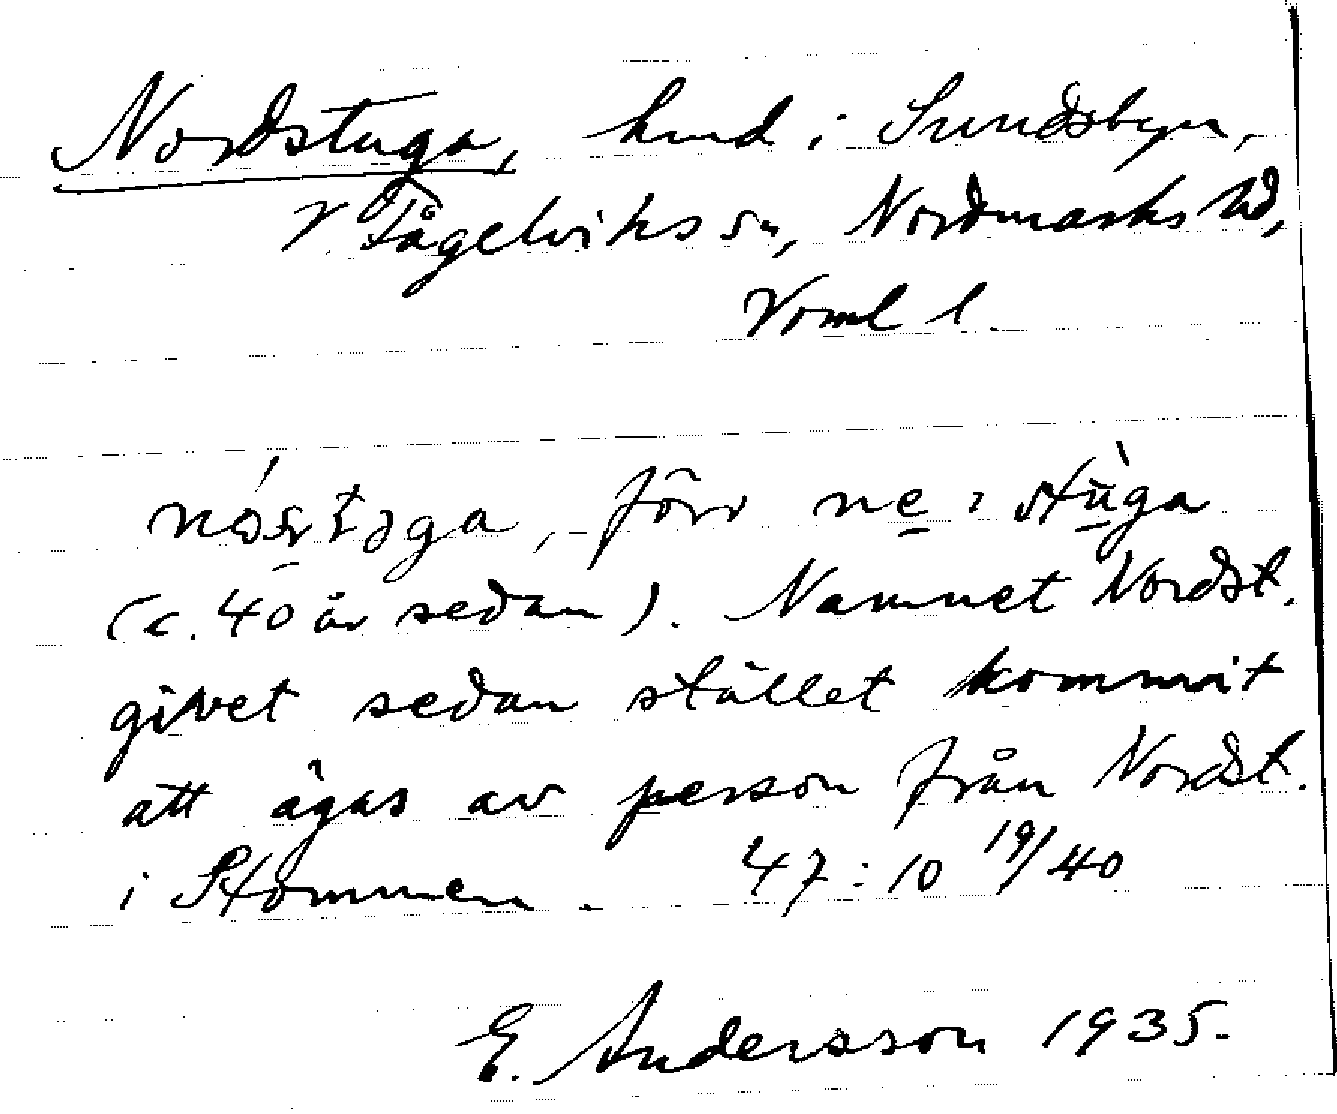 Nordstuga, hmd i Sundsbyn,
V Fågelviks sn, Nordmarks hd,
Vrml l.
förr
(c. 40 år sedan). Namnet Nordst.
givet sedan stället kommit
att ägas av person från Nordst.
i Stommen. 47:10 19/40
E. Andersson 1935.